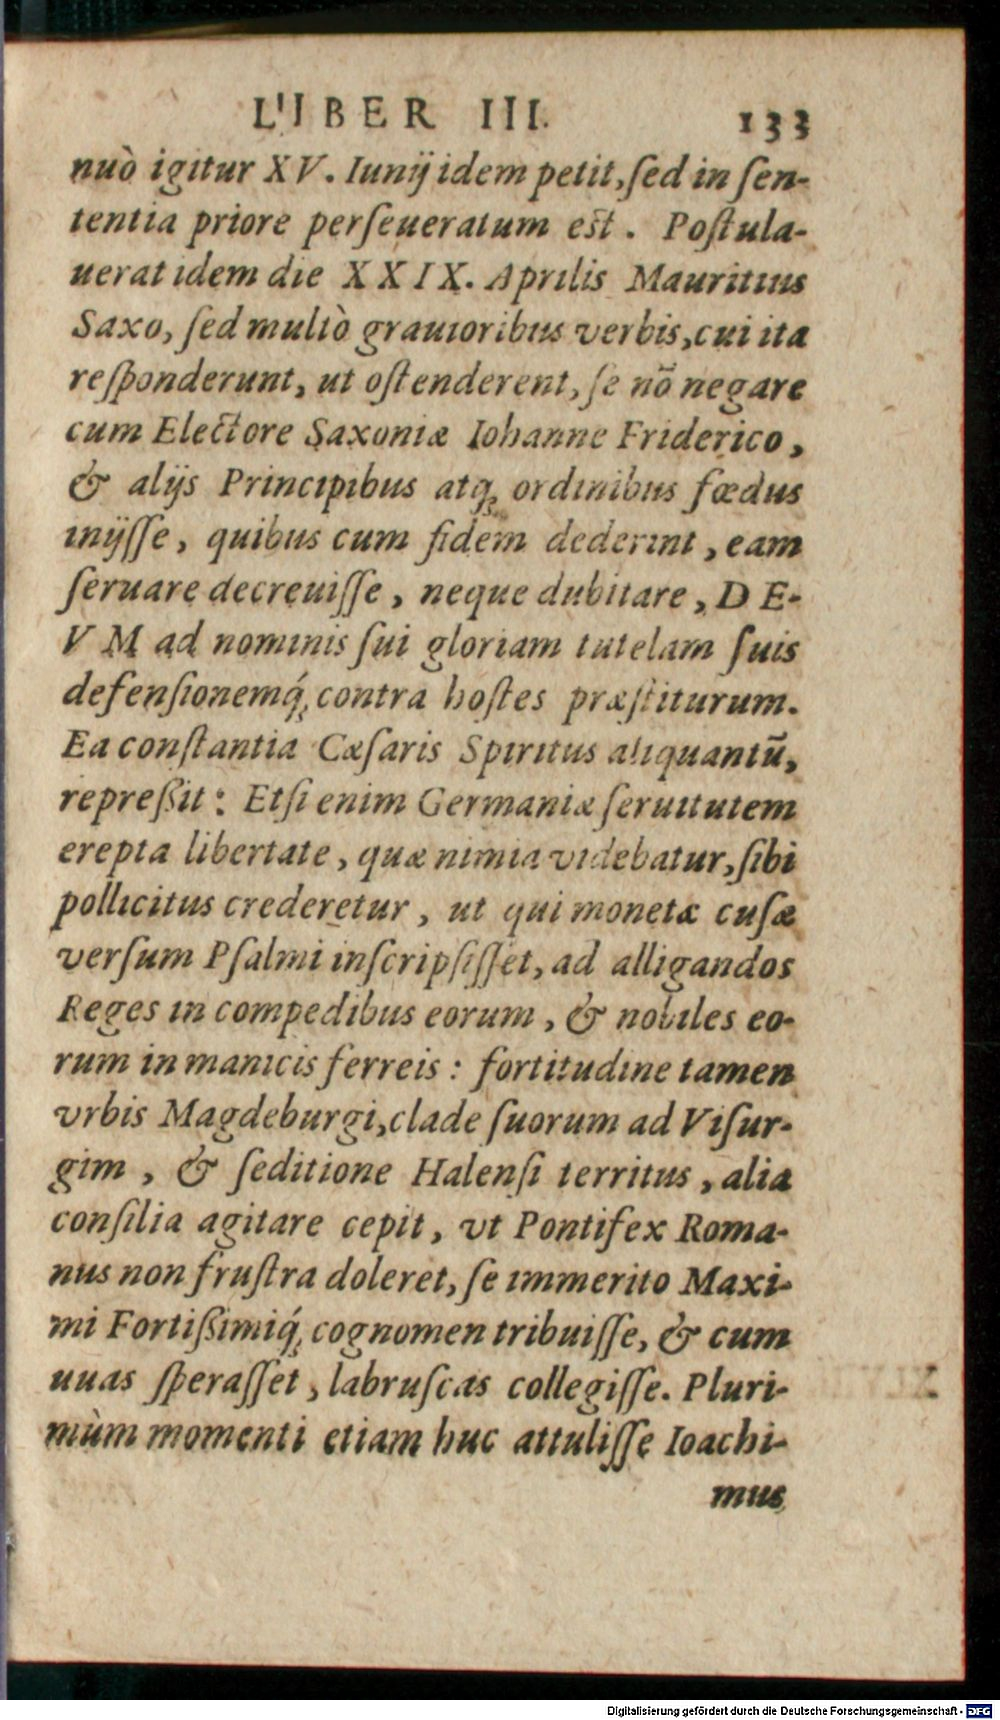 LIBER III. 133
nuò igitur XV. Iunij idem petit, ſed in ſen-
tentia priore perſeueratum est. Poſtula-
uerat idem die XXIX. Aprilis Mauritius
Saxo, ſed multò grauioribus verbis, cui ita
reſponderunt, ut oſtenderent, ſe nõ negare
cum Electore Saxoniæ Iohanne Friderico,
& alijs Principibus atq; ordinibus fœdus
inijſſe, quibus cum fidem dederint, eam
ſeruare decreuiſſe, neque dubitare, DE-
VM ad nominis ſui gloriam tutelam ſuis
defenſionemq́; contra hoſtes præſtiturum.
Ea conſtantia Cæſaris Spiritus aliquantũ,
repreßit: Etſi enim Germaniæ ſeruitutem
erepta libertate, quæ nimia videbatur, ſibi
pollicitus crederetur, ut qui monetæ cuſæ
verſum Pſalmi inſcripſiſſet, ad alligandos
Reges in compedibus eorum, & nobiles eo-
rum in manicis ferreis: fortitudine tamen
vrbis Magdeburgi, clade ſuorum ad Viſur-
gim, & ſeditione Halenſi territus, alia
conſilia agitare cepit, vt Pontifex Roma-
nus non fruſtra doleret, ſe immerito Maxi-
mi Fortißimiq́; cognomen tribuiſſe, & cum
uuas ſperaſſet, labruſcas collegiſſe. Pluri-
mùm momenti etiam huc attuliſſe Ioachi-
mus
Digitalisierung gefördert durch die Deutsche Forschungsgemeinschaft - DFG